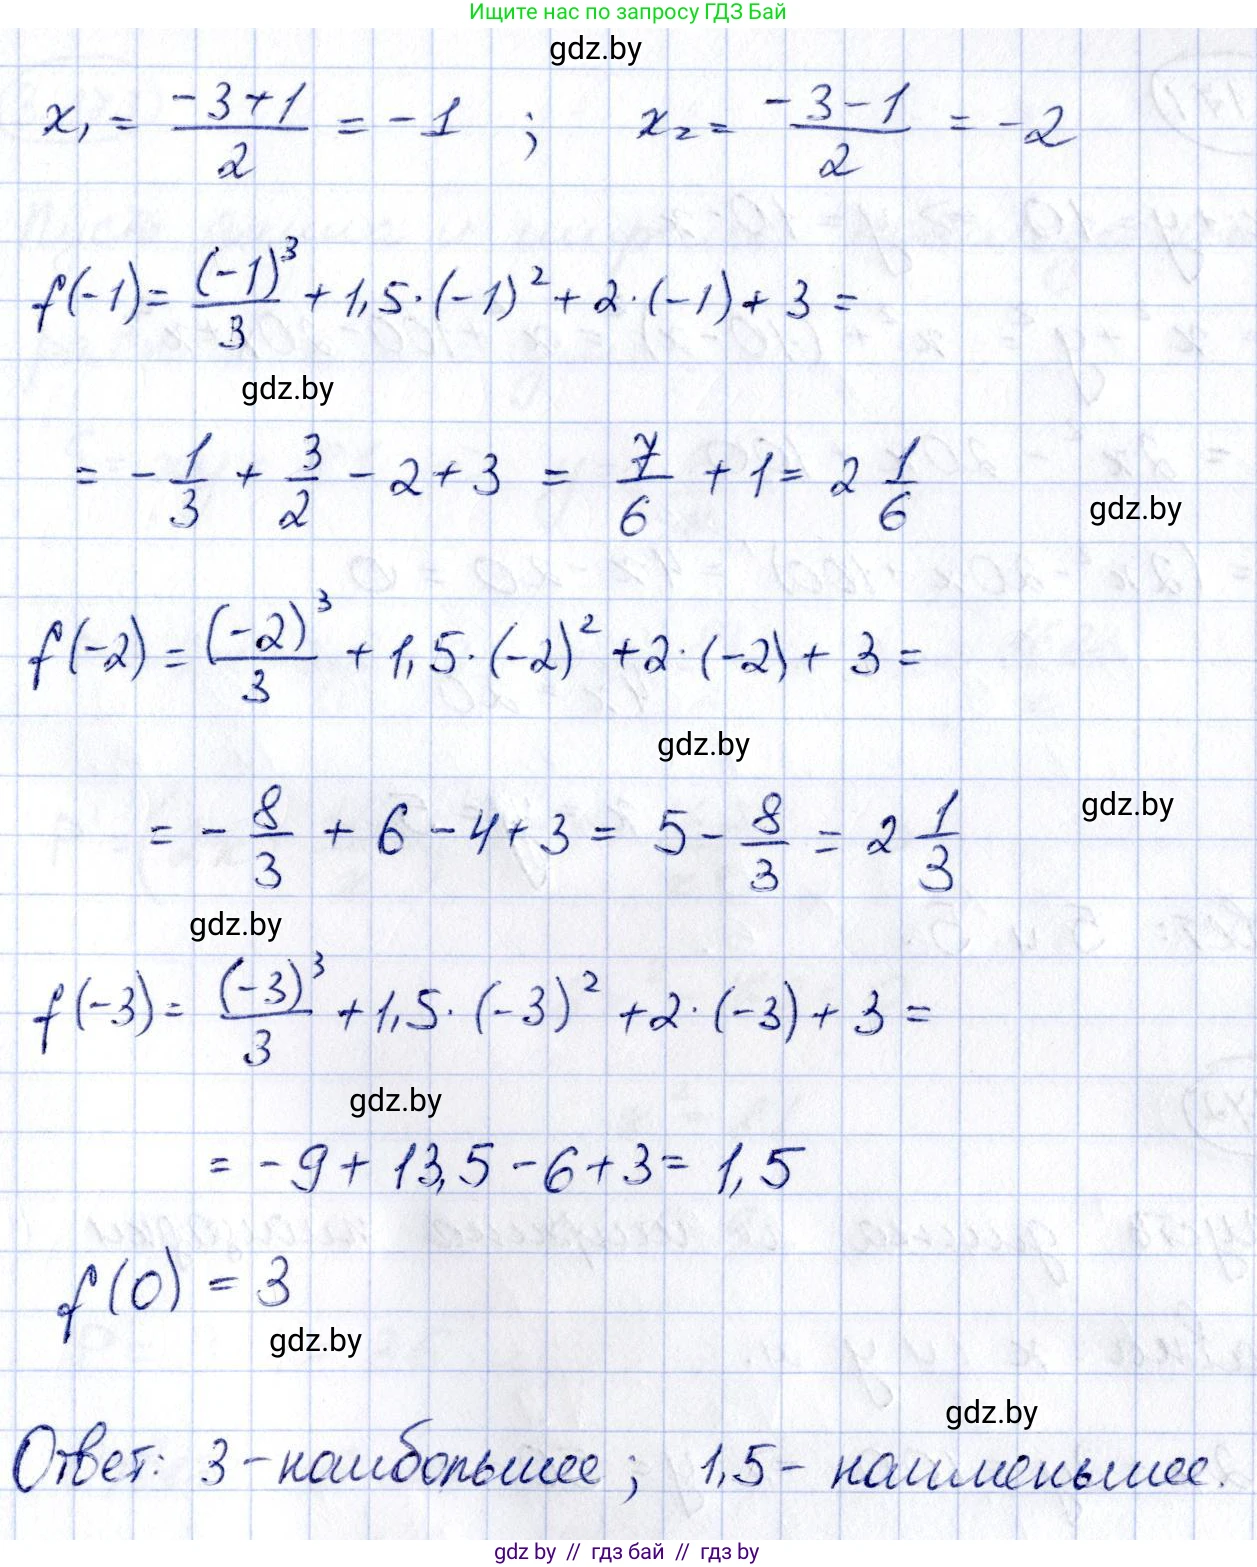 Ищите нас по запросу ГДЗ Бай
gdz.by
x₁ = (-3+1)/2 = -1 ; x₂ = (-3-1)/2 = -2
f(-1) = (-1)³/3 + 1,5·(-1)² + 2·(-1) + 3 =
gdz.by
= -1/3 + 3/2 - 2 + 3 = 7/6 + 1 = 2 1/6
gdz.by
f(-2) = (-2)³/3 + 1,5·(-2)² + 2·(-2) + 3 =
gdz.by
gdz.by
= -8/3 + 6 - 4 + 3 = 5 - 8/3 = 2 1/3
gdz.by
f(-3) = (-3)³/3 + 1,5·(-3)² + 2·(-3) + 3 =
gdz.by
= -9 + 13,5 - 6 + 3 = 1,5
f(0) = 3
gdz.by
gdz.by
Ответ: 3 - наибольшее ; 1,5 - наименьшее.
gdz.by // гдз бай // гдз by